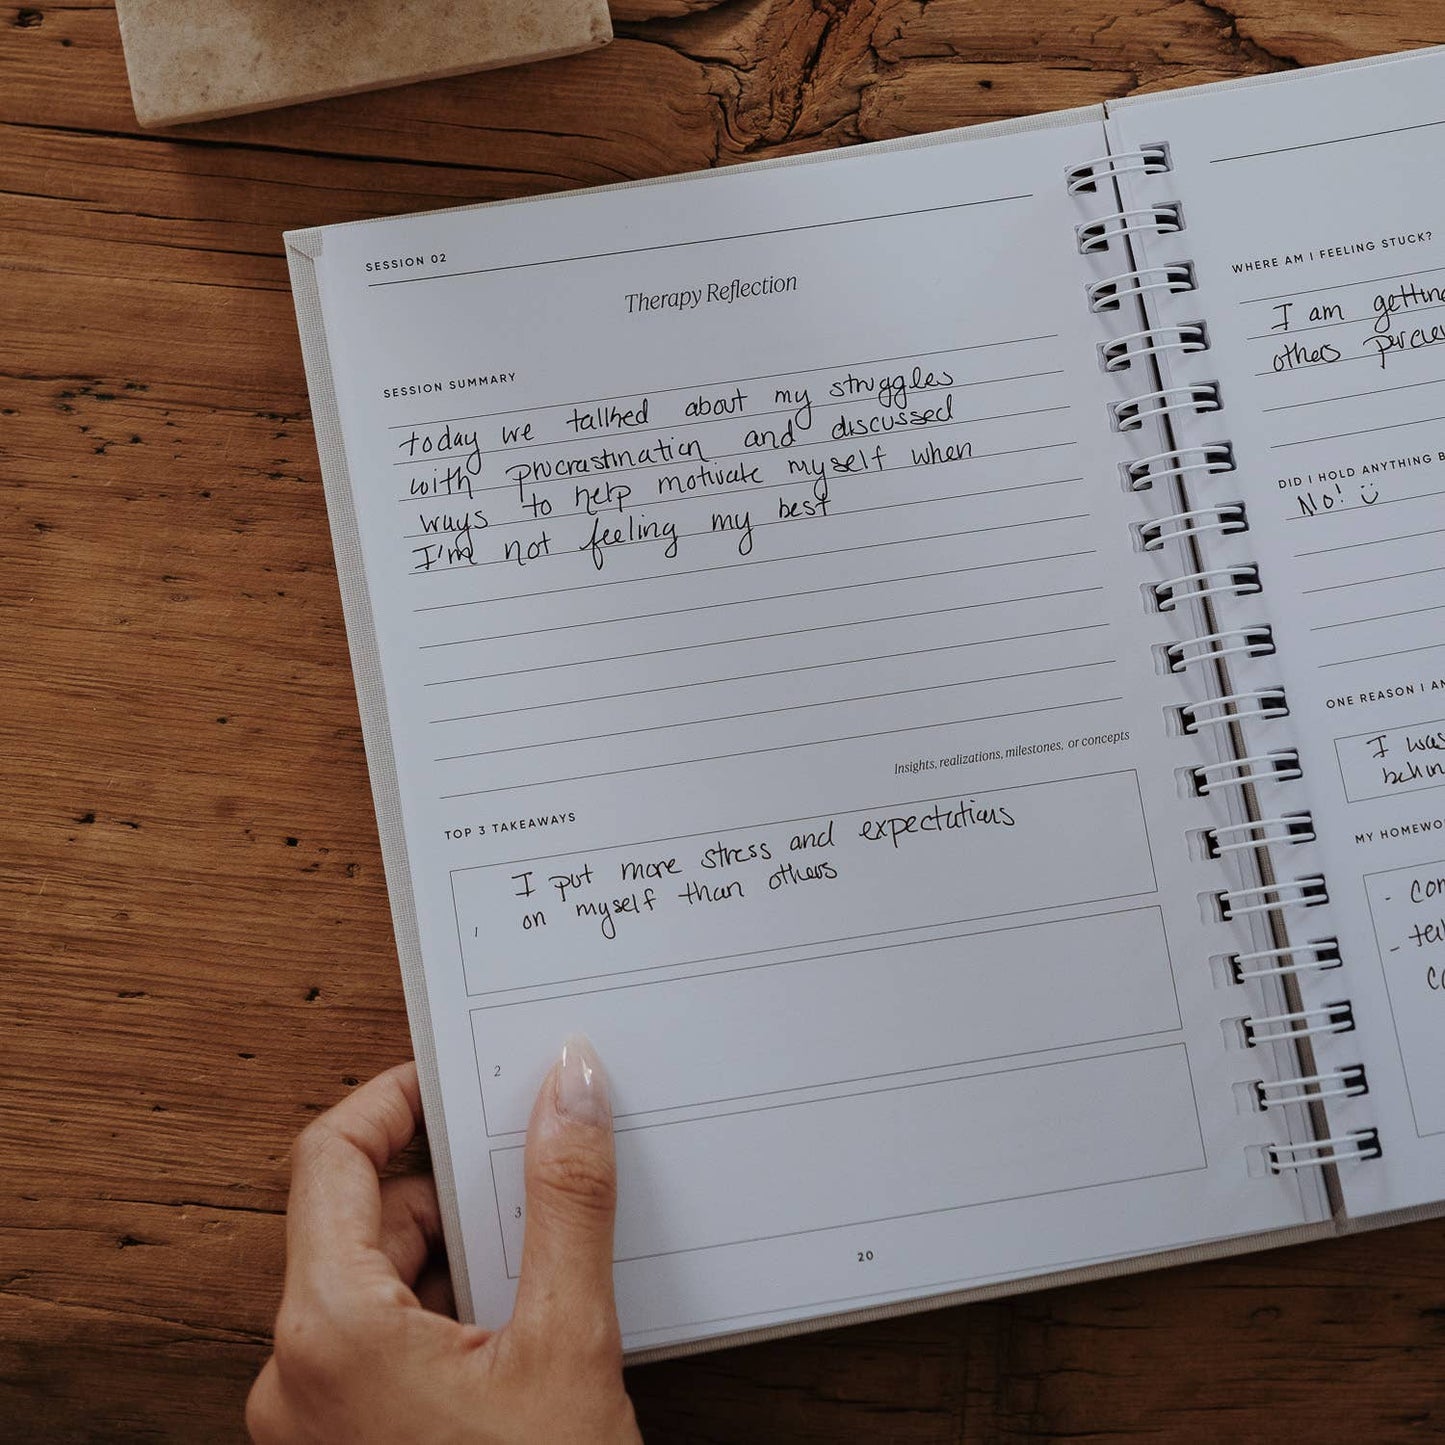 SESSION 02
Therapy Reflection
SESSION SUMMARY
today we talked about my struggles
with procrastination and discussed
ways to help motivate myself when
I'm not feeling my best
Insights, realizations, milestones, or concepts
TOP 3 TAKEAWAYS
1 I put more stress and expectations
on myself than others
2
3
20
WHERE AM I FEELING STUCK?
I am getting
others
DID I HOLD ANYTHING B
No! :)
ONE REASON I A
I was
behin
MY HOMEWO
- con
-